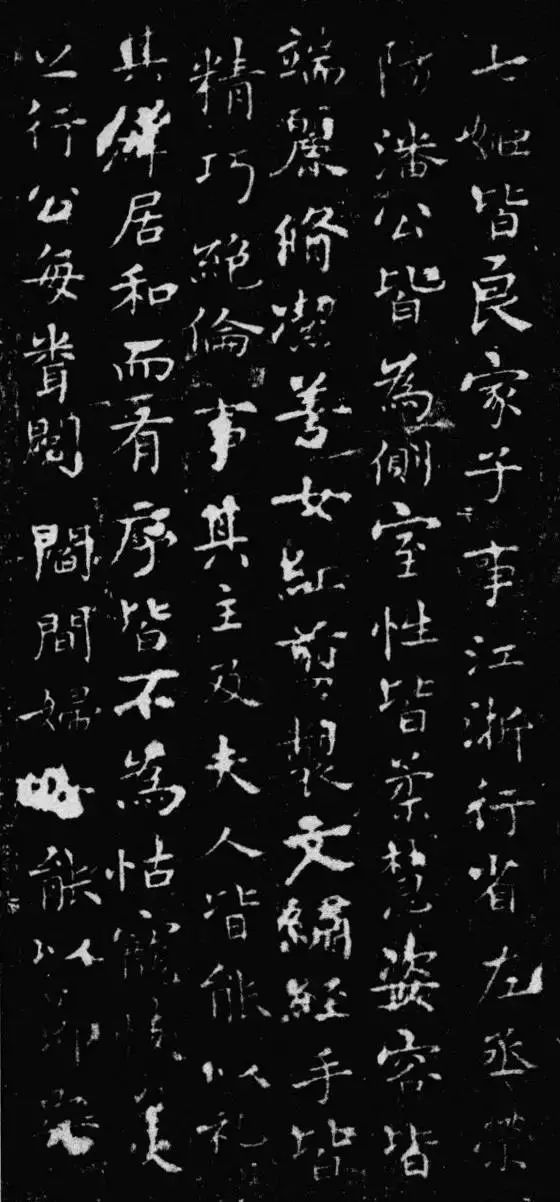 七姬皆良家子事江浙行省左丞榮
陽潘公皆為側室性皆柔慧姿容皆
端麗脩潔善女紅剪製文繡經手皆
精巧絕倫事其主及夫人皆能以礼
其儕居和而有序皆不為怙寵忮美
之行公每聞閭閻間婦能以節